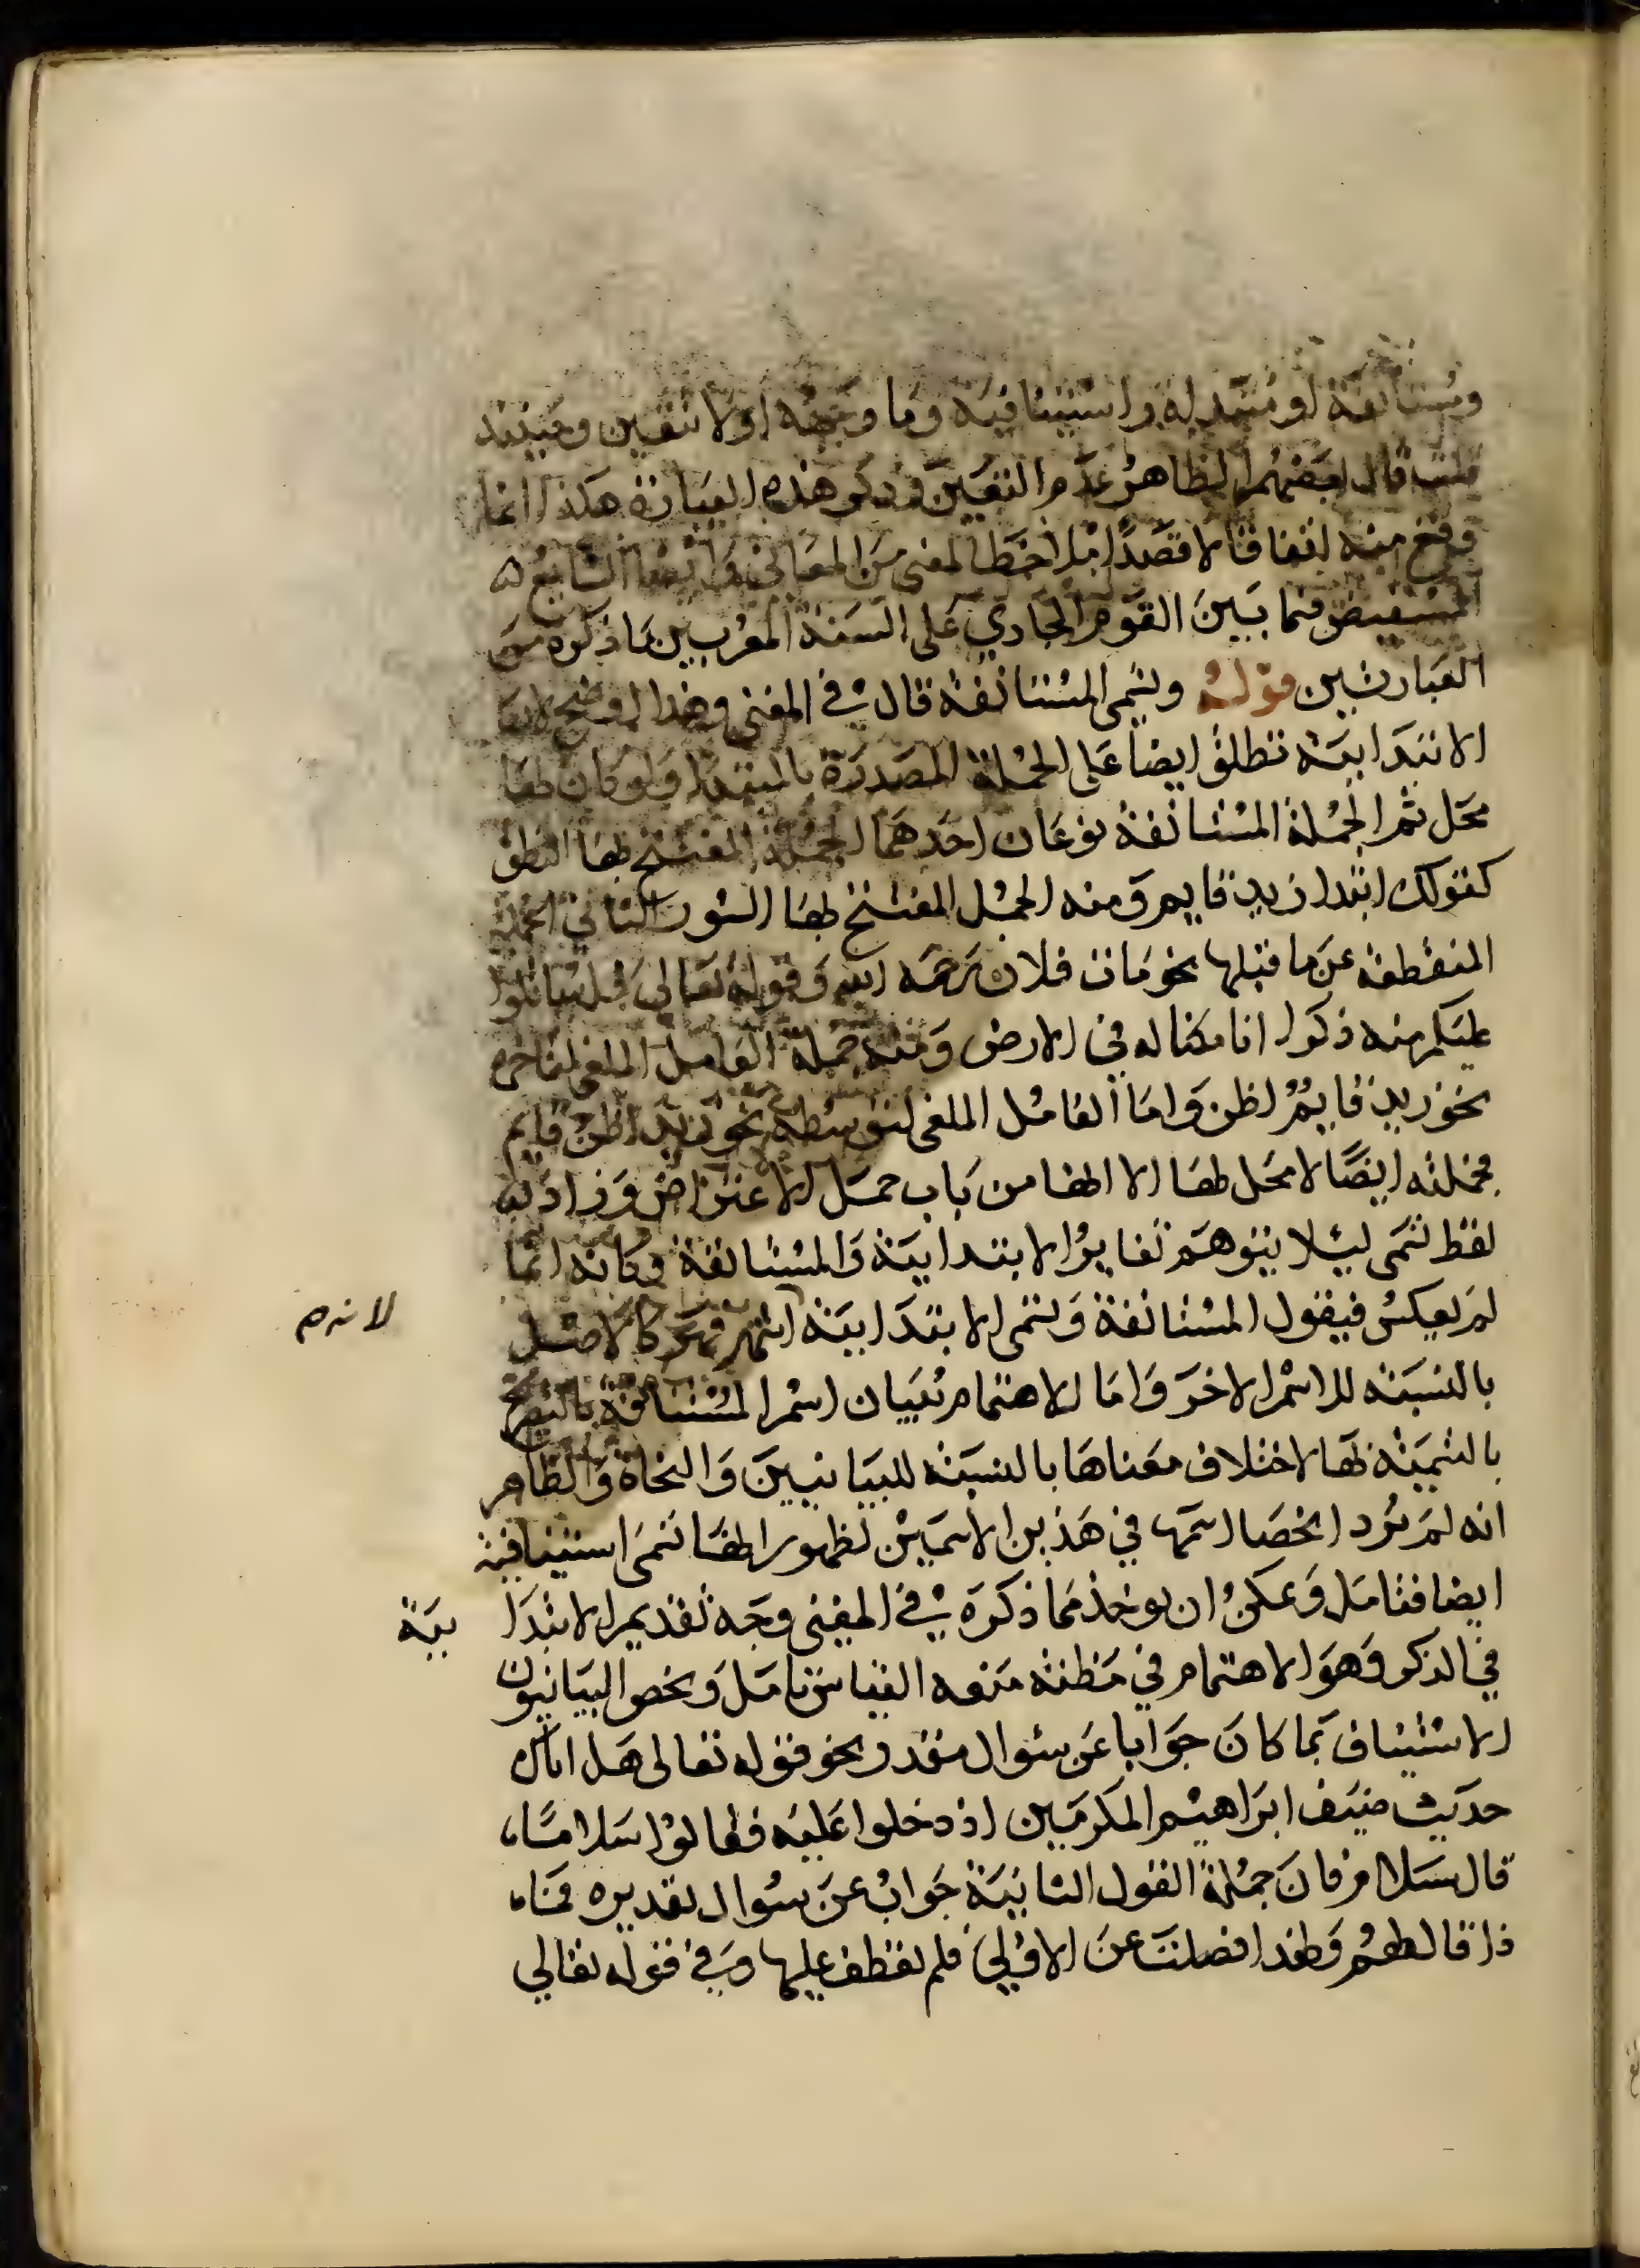 ومستأنفة او مبتدلة واستينافية وما وجهه اولا تتعين وحينئذ
قلت قال بعضهم الظاهر عدم التعين وذكر هذه العبارة هكذا انما
وقع منه اتفاقا لا قصدا المعنى من المعاني وايضا الشايع
المستفيض فيما بين القوم الجاري على السنة المعربين ما ذكره من
العبارتين قوله وتسمى المستانفة قال في المغني وهذا اوضح لان
الابتدايية تطلق ايضا على الجملة المصدرة بالمبتدا ولو كان لها
محل ثم الجملة المستانفة نوعان احدهما الجملة المفتتح بها النطق
كقولك ابتدا زيد قايم ومنه الجمل المفتتح بها السور الثاني الجملة
المنقطعة عن ما قبلها نحو مات فلان رحمه الله وقوله تعالى قل ساتلوا
عليكم منه ذكرا انا مكنا له في الارض ومنه جملة العامل الملغى لتاخره
نحو زيد قايم اظن واما العامل الملغى لتوسطه نحو زيد اظن قايم
فجملته ايضا لا محل لها الا انها من باب جمل الاعتراض وزاد
لفظ تسمى ليلا يتوهم تغاير الابتدايية والمستانفة وكانه انما
لم يعكس فيقول المستانفة وتسمى الابتدايية اشهر فهو كالاصل
لانه م
بالنسبة للاسم الاخر واما الاهتمام ببيان اسم المستانفة بالتصريح
بالتسمية لها لاختلاف معناها بالنسبة للبيانيين والنحاة والظاهر
انه لم يرد انحصار اسمها في هذين الاسمين لظهور انها تسمى استينافية
ايضا فتامل ويمكن ان يوخذ مما ذكره في المغني وجه تقديم الابتدا يية
في الذكر وهو الاهتمام في مظنة منعه القياس تامل ويخص البيانيون
الاستيناف بما كان جوابا عن سوال مقدر نحو قوله تعالى هل اتاك
حديث ضيف ابراهيم المكرمين اذ دخلوا عليه فقالوا سلاما
قال سلام فان جملة القول الثانية جواب عن سوال تقديره فما
ذا قال لهم ولهذا فصلت عن الاولى فلم تعطف عليها وفي قوله تعالى